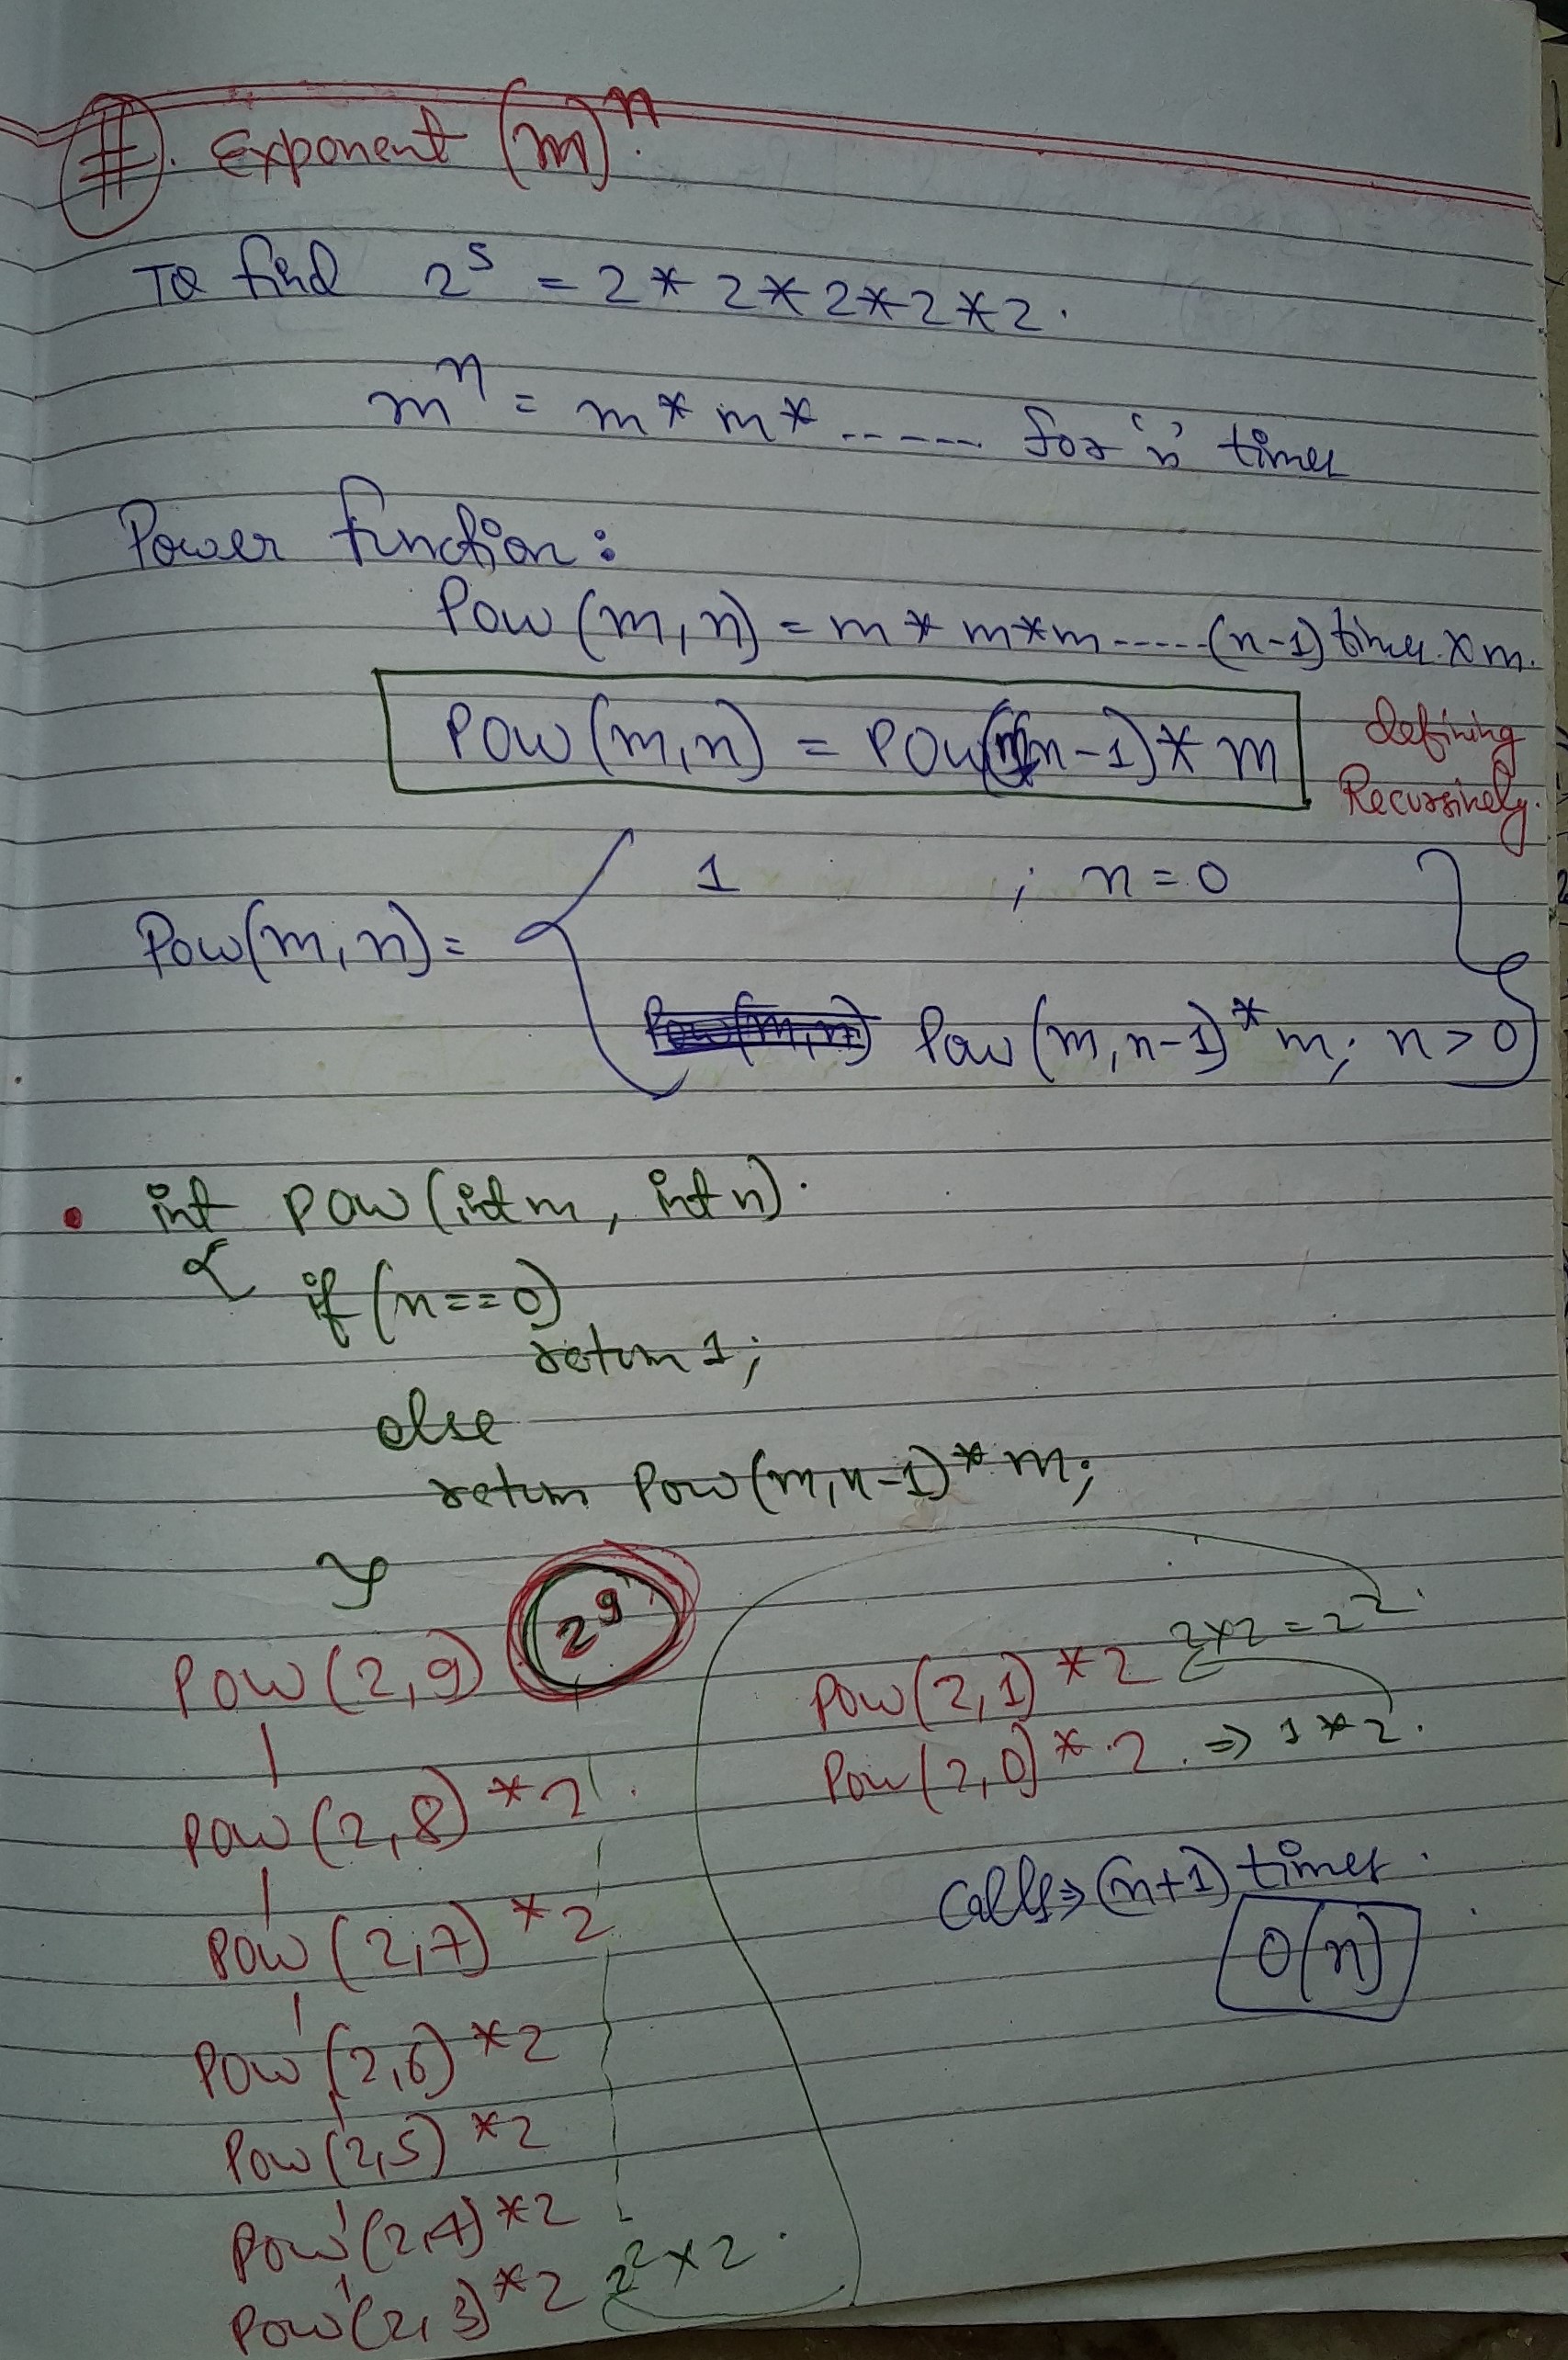 #. Exponent (m)^n.
To find 2^5 = 2 * 2 * 2 * 2 * 2.
m^n = m * m * ------ for 'n' times
Power function :
Pow (m, n) = m * m * m -----(n-1) times * m.
POW (m, n) = POW(m, n-1) * m
defining
Recursively.
1 ; n = 0
Pow(m, n) =
Pow (m, n-1) * m; n > 0
• int POW (int m, int n).
{ if (n == 0)
return 1;
else
return Pow(m, n-1) * m;
}
POW (2, 9) 2^9
POW (2, 8) * 2
POW (2, 7) * 2
POW (2, 6) * 2
POW (2, 5) * 2
POW (2, 4) * 2
POW (2, 3) * 2 2^2 × 2.
POW (2, 1) * 2 2×2 = 2^2.
Pow (2, 0) * 2. ⇒ 1 * 2.
Calls ⇒ (n+1) times.
O(n)